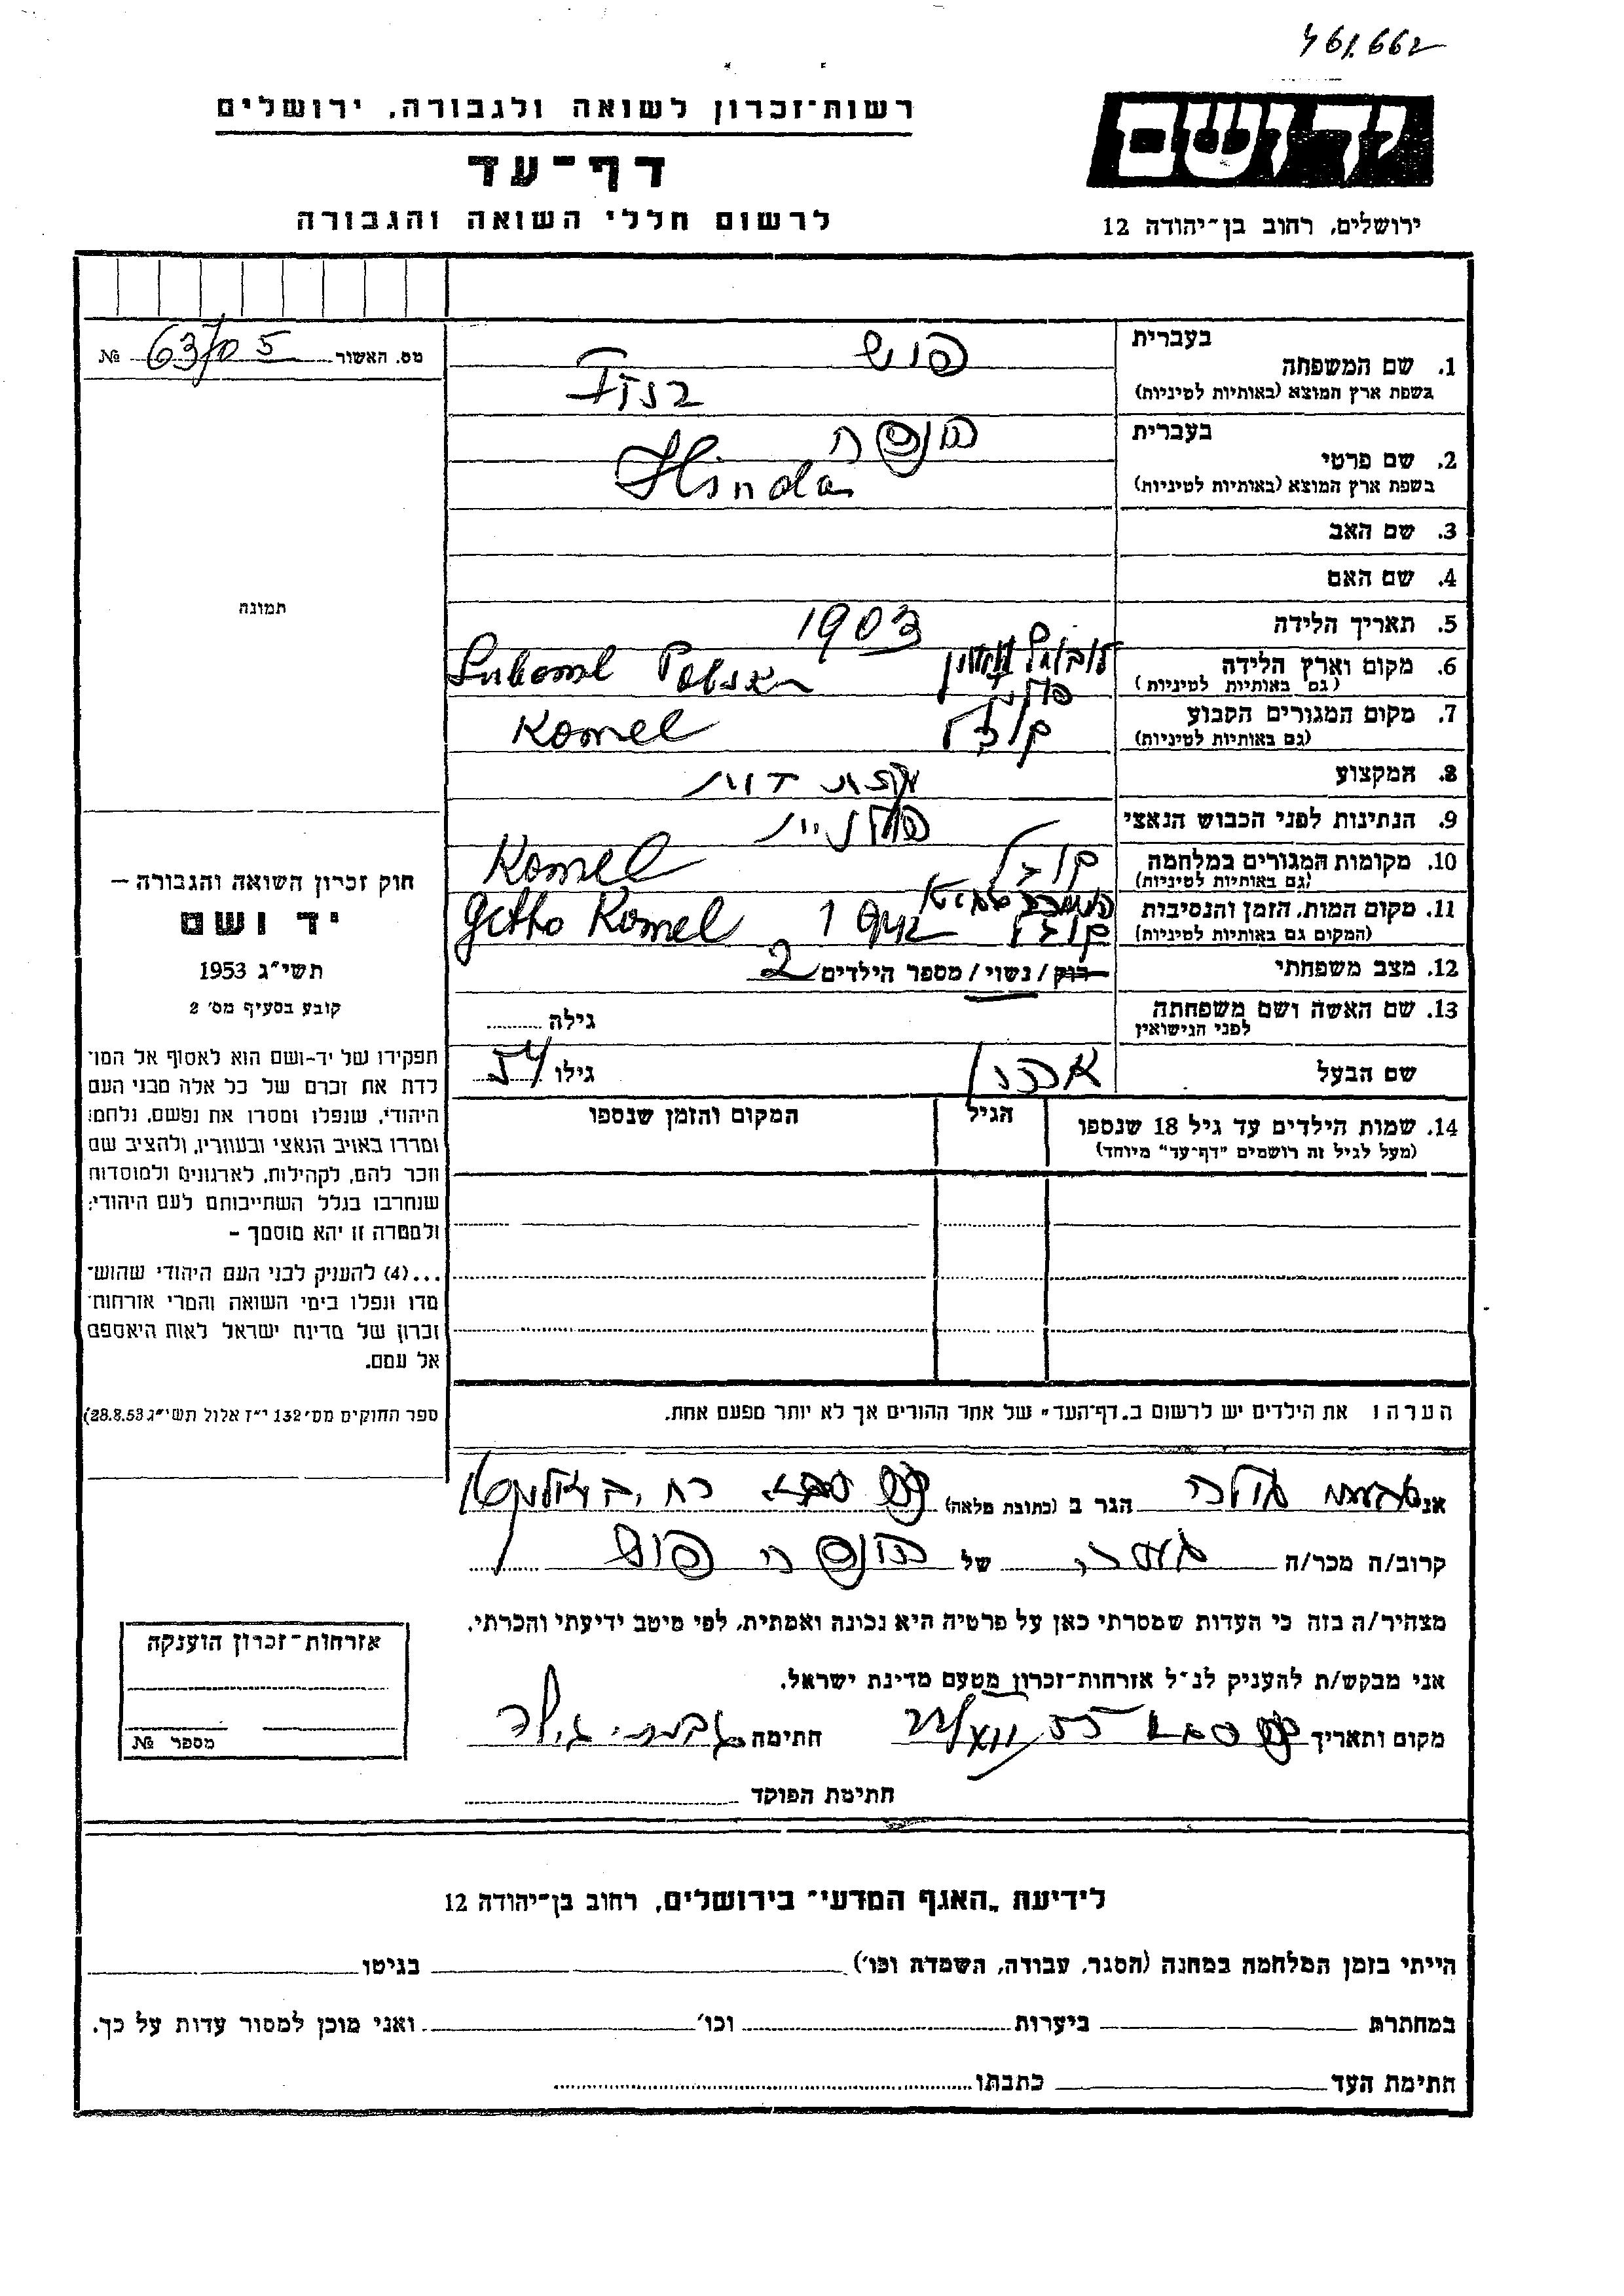 461.662
רשות־זכרון לשואה ולגבורה, ירושלים
דף־עד
לרשום חללי השואה והגבורה
יד ושם
ירושלים, רחוב בן־יהודה 12
מס. האשור № 63/05
תמונה
חוק זכרון השואה והגבורה —
יד ושם
תשי״ג 1953
קובע בסעיף מס׳ 2
תפקידו של יד-ושם הוא לאסוף אל המו־
לדת את זכרם של כל אלה מבני העם
היהודי, שנפלו ומסרו את נפשם, נלחמו
ומרדו באויב הנאצי ובעוזריו, ולהציב שם
וזכר להם, לקהילות, לארגונים ולמוסדות
שנחרבו בגלל השתייכותם לעם היהודי;
ולמטרה זו יהא מוסמך —
...(4) להעניק לבני העם היהודי שהוש־
מדו ונפלו בימי השואה והמרי אזרחות־
זכרון של מדינת ישראל לאות היאספם
אל עמם.
ספר החוקים מס׳ 132 י״ז אלול תשי״ג (28.8.53)
בעברית
1. שם המשפחה
בשפת ארץ המוצא (באותיות לטיניות)
בעברית
2. שם פרטי
בשפת ארץ המוצא (באותיות לטיניות)
Hinda
3. שם האב
4. שם האם
5. תאריך הלידה 1903
6. מקום וארץ הלידה
(גם באותיות לטיניות) Luboml
7. מקום המגורים הקבוע
(גם באותיות לטיניות) Komel
8. המקצוע
9. הנתינות לפני הכבוש הנאצי פולנית
10. מקומות המגורים במלחמה
(גם באותיות לטיניות) Komel
11. מקום המות, הזמן והנסיבות
(המקום גם באותיות לטיניות) 1942 Getto Komel
12. מצב משפחתי רוק / נשוי / מספר הילדים 2
13. שם האשה ושם משפחתה
לפני הנישואין גילה
שם הבעל אהרן גילו 54
14. שמות הילדים עד גיל 18 שנספו
(מעל לגיל זה רושמים "דף־עד" מיוחד)
הגיל
המקום והזמן שנספו
הערה: את הילדים יש לרשום ב„דף־העד" של אחד ההורים אך לא יותר מפעם אחת.
אני הגר ב (כתובת מלאה) כפר סבא
קרוב/ה מכר/ה של
מצהיר/ה בזה כי העדות שמסרתי כאן על פרטיה היא נכונה ואמתית, לפי מיטב ידיעתי והכרתי.
אני מבקש/ת להעניק לנ״ל אזרחות־זכרון מטעם מדינת ישראל.
מקום ותאריך כפר סבא חתימה
חתימת הפוקד
אזרחות־זכרון הוענקה
מספר №
לידיעת „האגף המדעי" בירושלים, רחוב בן־יהודה 12
הייתי בזמן המלחמה במחנה (הסגר, עבודה, השמדה וכו׳) בגיטו
במחתרת ביערות וכו׳ ואני מוכן למסור עדות על כך.
חתימת העד כתבתו